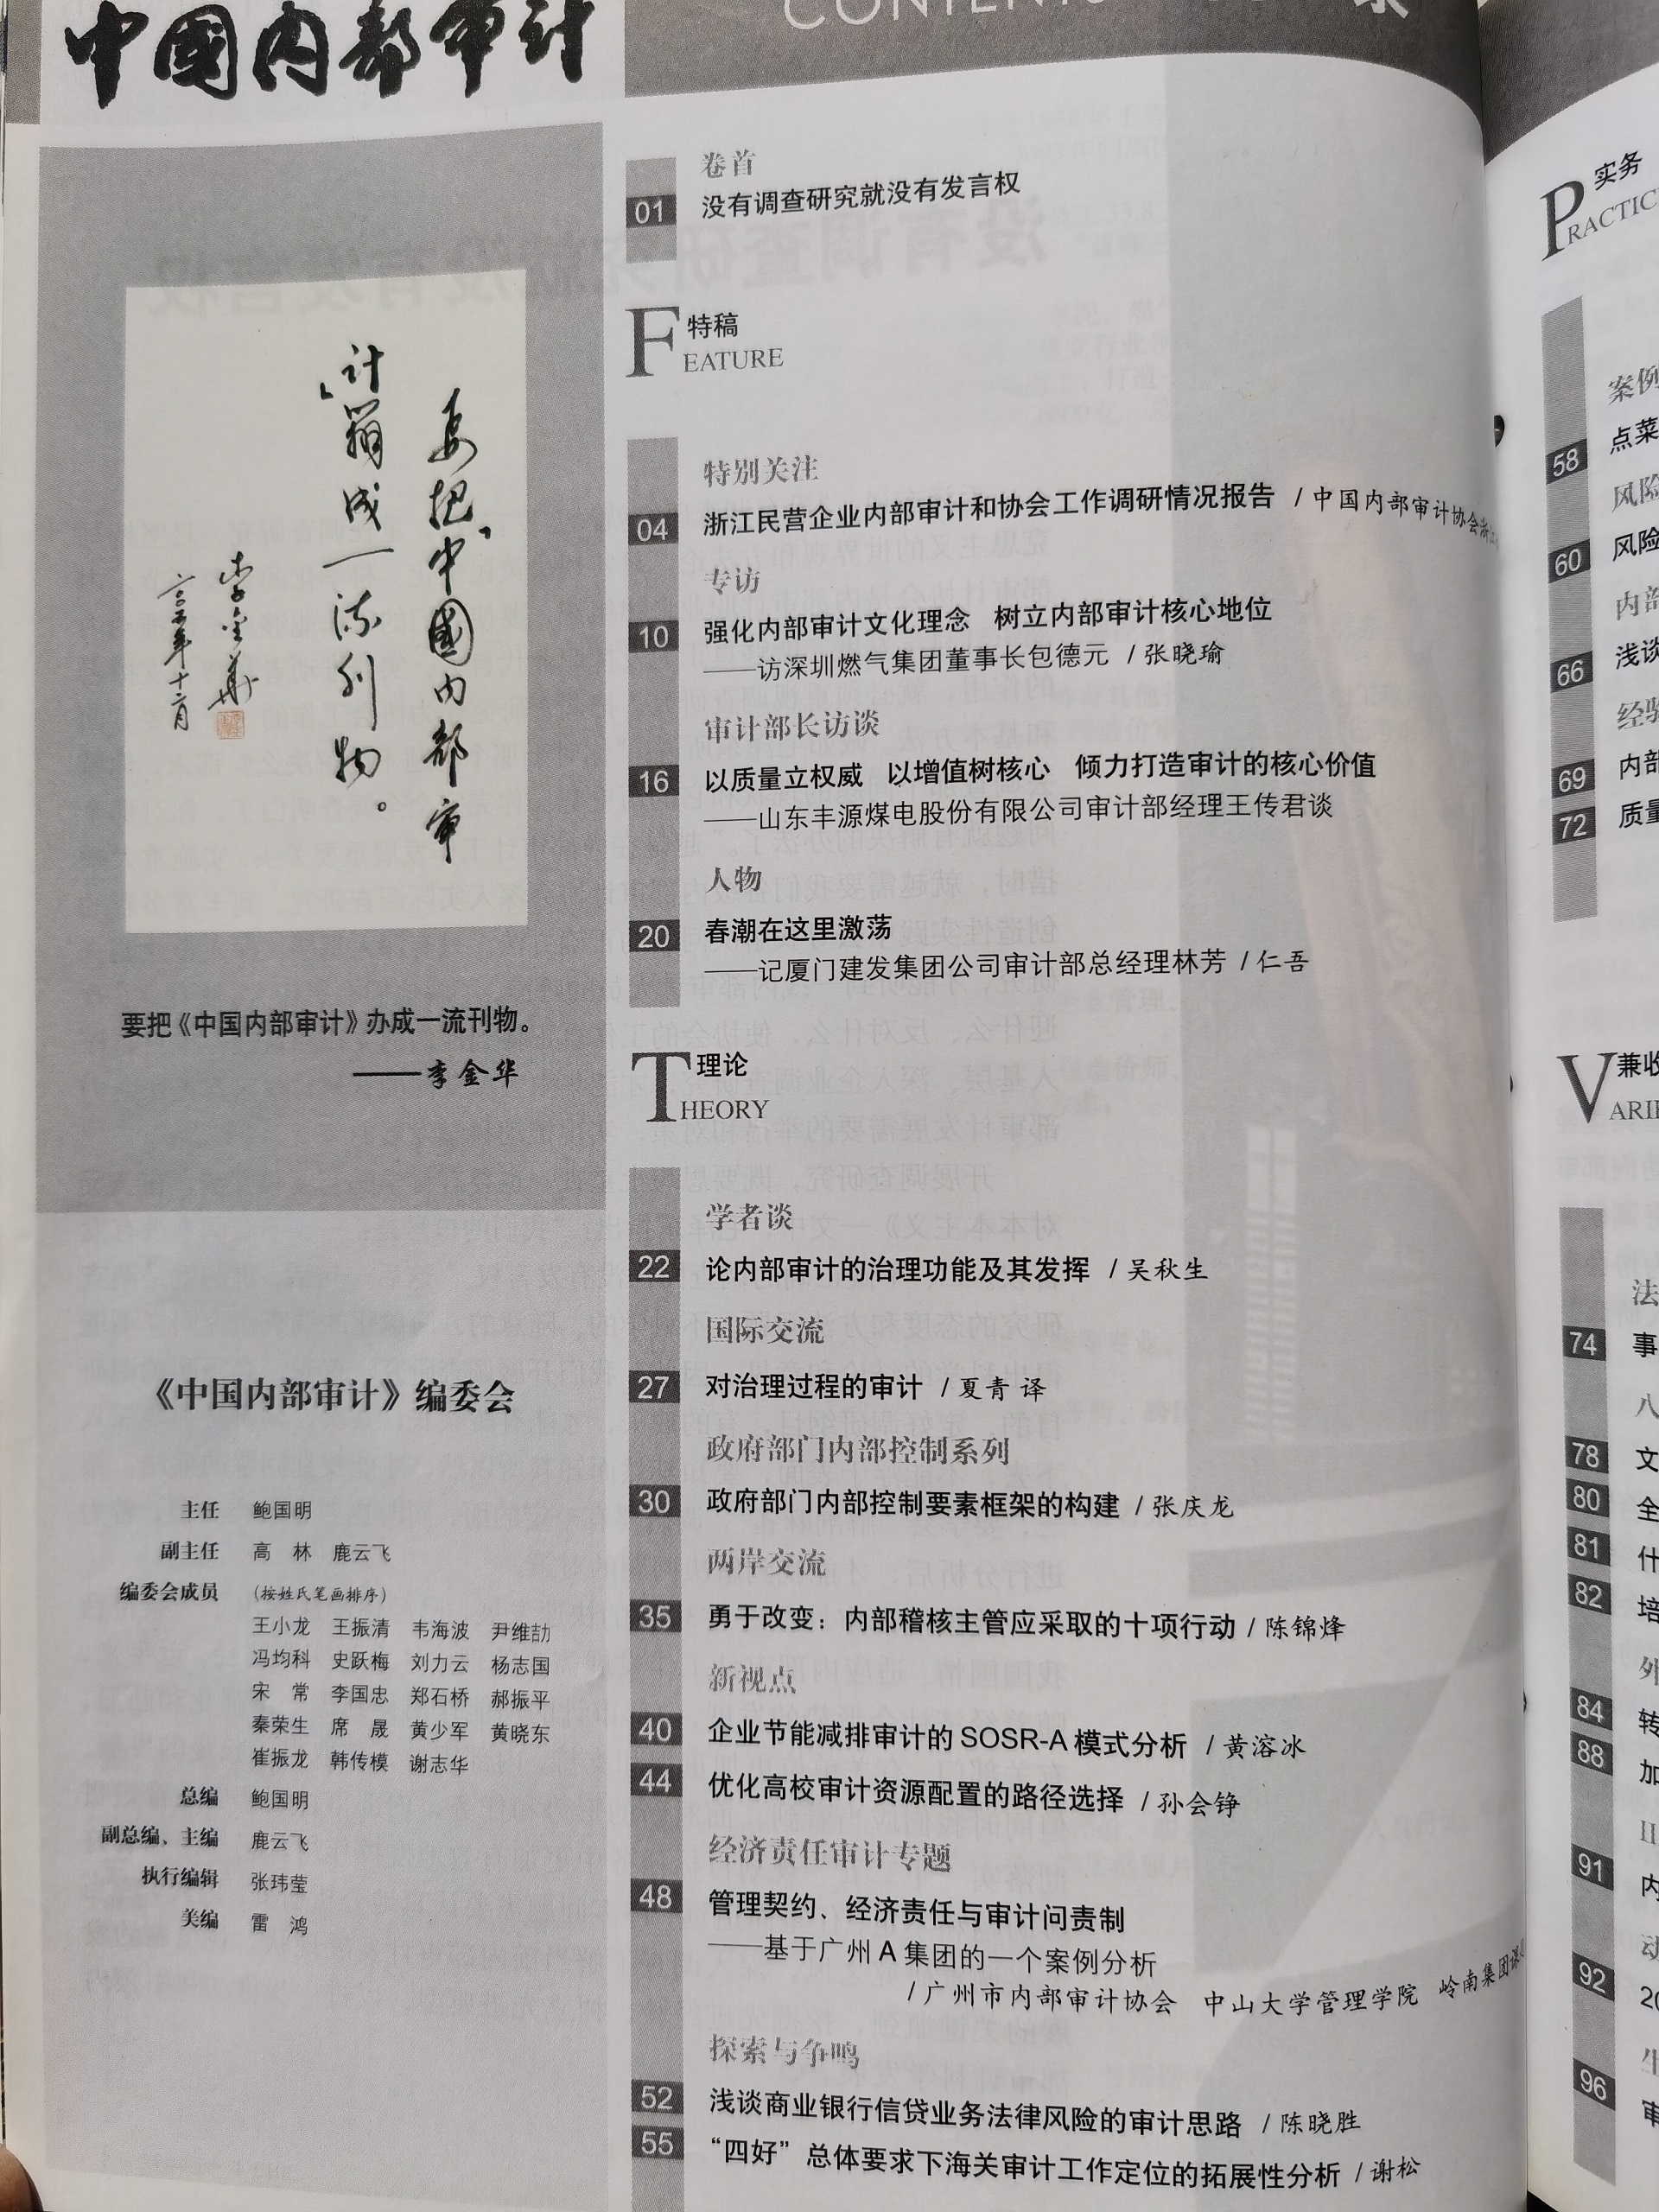 中國内部审计
CONTENTS
要把《中國内部审
计》办成一流刊物。
李金华
二〇〇五年十二月
要把《中国内部审计》办成一流刊物。
——李金华
《中国内部审计》编委会
主任 鲍国明
副主任 高 林 鹿云飞
编委会成员 (按姓氏笔画排序)
王小龙 王振清 韦海波 尹维劼
冯均科 史跃梅 刘力云 杨志国
宋 常 李国忠 郑石桥 郝振平
秦荣生 席 晟 黄少军 黄晓东
崔振龙 韩传模 谢志华
总编 鲍国明
副总编、主编 鹿云飞
执行编辑 张玮莹
美编 雷 鸿
卷首
01 没有调查研究就没有发言权
特稿
FEATURE
特别关注
04 浙江民营企业内部审计和协会工作调研情况报告 / 中国内部审计协会
专访
10 强化内部审计文化理念 树立内部审计核心地位
——访深圳燃气集团董事长包德元 / 张晓瑜
审计部长访谈
16 以质量立权威 以增值树核心 倾力打造审计的核心价值
——山东丰源煤电股份有限公司审计部经理王传君谈
人物
20 春潮在这里激荡
——记厦门建发集团公司审计部总经理林芳 / 仁吾
理论
THEORY
学者谈
22 论内部审计的治理功能及其发挥 / 吴秋生
国际交流
27 对治理过程的审计 / 夏青 译
政府部门内部控制系列
30 政府部门内部控制要素框架的构建 / 张庆龙
两岸交流
35 勇于改变：内部稽核主管应采取的十项行动 / 陈锦烽
新视点
40 企业节能减排审计的 SOSR-A 模式分析 / 黄溶冰
44 优化高校审计资源配置的路径选择 / 孙会铮
经济责任审计专题
48 管理契约、经济责任与审计问责制
——基于广州 A 集团的一个案例分析
/ 广州市内部审计协会 中山大学管理学院 岭南集团
探索与争鸣
52 浅谈商业银行信贷业务法律风险的审计思路 / 陈晓胜
55 “四好”总体要求下海关审计工作定位的拓展性分析 / 谢松
实务
PRACTIC
案例
58 点菜
风险
60 风险
内部
66 浅谈
经验
69 内部
72 质量
兼收
VARIE
法
74 事
八
78 文
80 全
81 什
82 培
外
84 转
88 加
91 内
动
92 20
96 审